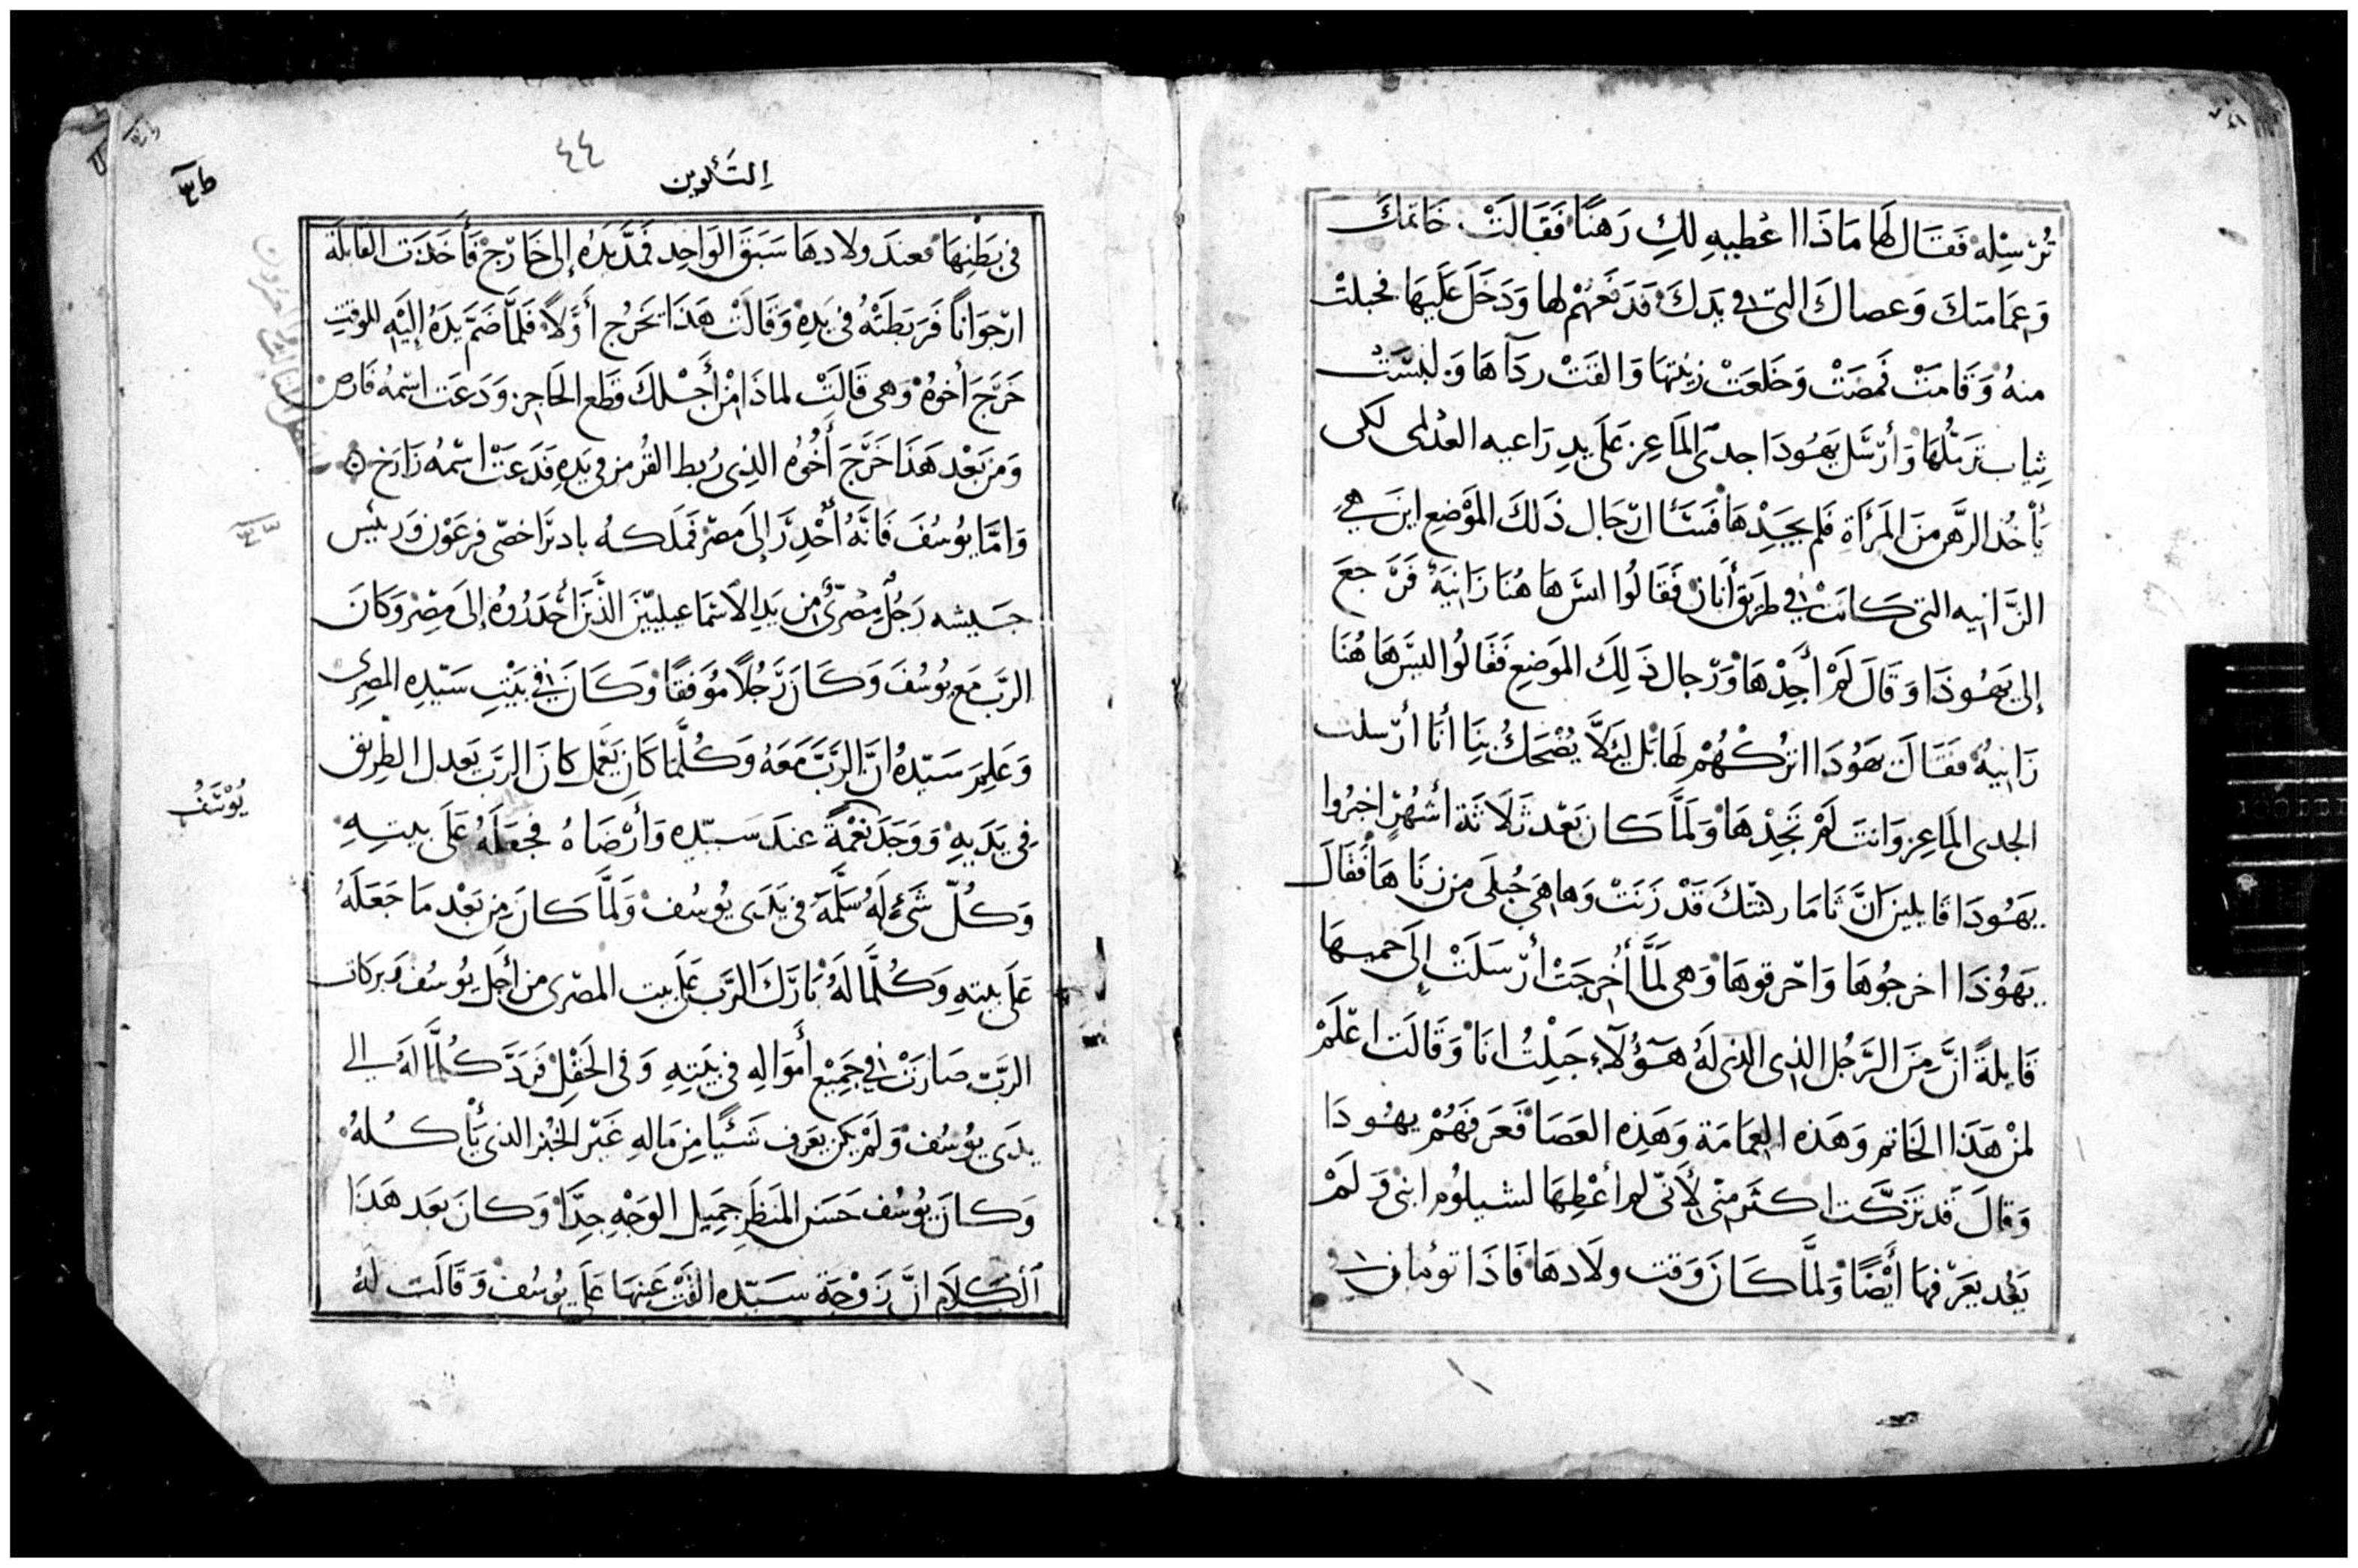 تُرْسِله فَقَال لَهَا مَاذَا اعْطيهِ لكِ رَهنًا فَقَالَتْ خَاتمكَ
وَعِمَامتكَ وَعصاكَ التى فى يَدكَ فَدَفَعَهُمْ لها وَدَخَلَ عَلَيهَا فحبلتْ
منهُ وَقَامَتْ فمضَتْ وَخَلَعَتْ زِيْنتهَا وَالقَتْ ردآهَا وَلبسَتْ
ثياب تَرَمُّلهَا وَأرْسَل يَهُودَا جدى المَاعِز عَلَى يدِ رَاعيه العدلمى لكى
يَأخُذ الرَّهن منَ المَرْأةِ فَلم يجَدْهَا فَسَئَال رّجَال ذَلكَ المَوْضع اينَ هي
الزَّانيه التى كانَت فى طَريق أنَان فَقَالُوا ليسَ هَاهُنَا زَانِيَهْ فَرَجعَ
إلى يَهُوذَا وَقَالَ لَمْ أجدْهَا وَرّجال ذَلِكَ المَوضِع فَقَالُوا ليسَ هَاهُنَا
زَانيهْ فَقَالَ يَهُوُدَا اترُكهُمْ لهَا بَل لئَلاَّ يُضْحَكُ بنَا أنَا أرْسلت
الجدى المَاعِز وَانتَ لَمْ تَجِدْهَا وَلَمَّا كان بَعْد ثَلَاثَة أشْهُرْ اخبرُوا
يَهُودَا قايلين انَّ ثامَار كنتكَ قَدْ زَنَتْ وَهَا هىَ حُبلَى من زنَاهَا فَقَالَ
يَهُوُذَا اخرجُوهَا وَاحْرقوهَا وَهى لَمَّا أُخرجَتْ أرْسَلَتْ إلَى حَميهَا
قَايلةً انَّ منَ الرَّجُل الذى الذى لَهُ هَؤُلآءِ حَبِلْتُ انَا وَقَالَت اعْلَمْ
لمنْ هَذَا الخَاتم وَهَذه العِمَامَة وَهَذِه العَصَا فَعَرَفهُمْ يهُودَا
وَقالَ قد تزَكَّت اكثَر منّى لأَنّى لم أعْطِهَا لشيلوُم ابنى وَلَمْ
يَعُد يَعْرفهَا أيْضًا وَلمَّا كَانَ وَقت ولَادهَا فَاذَا توُمان
٤٤
التَكوين
فى بَطْنِهَا فعندَ ولادهَا سَبَقَ الوَاحِد فمَدَّ يَدَهُ إلى خَارّج فَأخَذَت القَابلَة
ارْجوَاناً فَرَبَطَتْهُ فى يَدِهِ وَقَالَتْ هَذَا يَخرُج أَوَّلاً فَلمَّا ضَمَّ يدَهُ إلَيْهِ للوَقتِ
خَرَجَ أخوُهْ وَهى قَالَتْ لماذَا منْ أَجْلكَ قطَع الحَاجز وَدَعَت اسْمهُ فَارصْ
وَمن بَعْد هَذَا خَرَجَ أَخُوُهُ الذى رُبط القُرمز فى يَدِهِ فَدَعَتْ اسْمه زَارَخ
وَامَّا يوُسُفَ فَانَّهُ أُحْدِرَ إلَى مصْر فَملكهُ بادترَا خصّى فرعَوْن وَرئيس
جَيشه رَجُل مِصْرّىٌ من يَدِ الاسْمَاعيليّينَ الذّينَ أحدَرُوهُ إلَى مِصْر وَكانَ
الربّ مَع يُوسُفَ وَكَانَ رَجُلًا مُوَفقًا وَكَانَ فى بَيْتِ سَيّدِه المصرى
وَعَلِمَ سَيّدهُ انَّ الرَبَّ مَعَهُ وَكُلَّمَا كَان يَعْمَل كانَ الرَبّ يَعدل الطريق
فِى يَدَيهِ وَوَجَدَ نَعْمَةً عندَ سَيّده وَأَرْضَاهُ فجَعَلَهُ عَلَى بيتِهِ
يُوْسَفُ
وَكُلّ شَىْءٍ لَهُ سَلَّمَهُ فى يَدَى يوُسُف وَلَمَّا كانَ من بَعْد مَا جَعَلَهُ
عَلَى بيتهِ وَكُلَّمَا لَهُ بَارَكَ الرَّب عَلَى بيت المصْرى من أَجَل يوُسُف وَبركات
الربّ صَارَتْ فى جَمِيْع أَموَالهِ فى بَيتِهِ وَفى الحَقْل فَرَدَّ كُلمَّا لَهُ الى
يدَى يوُسُف وَلَمْ يكن يَعرف شَئيًا مِن مَالهِ غَيْر الخُبْز الذى يَأكُلهُ
وَكانَ يوُسُف حَسَن المَنظَر جَمِيل الوَجْهِ جِدًّا وَكانَ بَعَد هَذَا
الكَلَام انَّ زَوْجَة سَيّده القَتْ عَينهَا عَلَى يوُسُف وَقَالَت لهُ